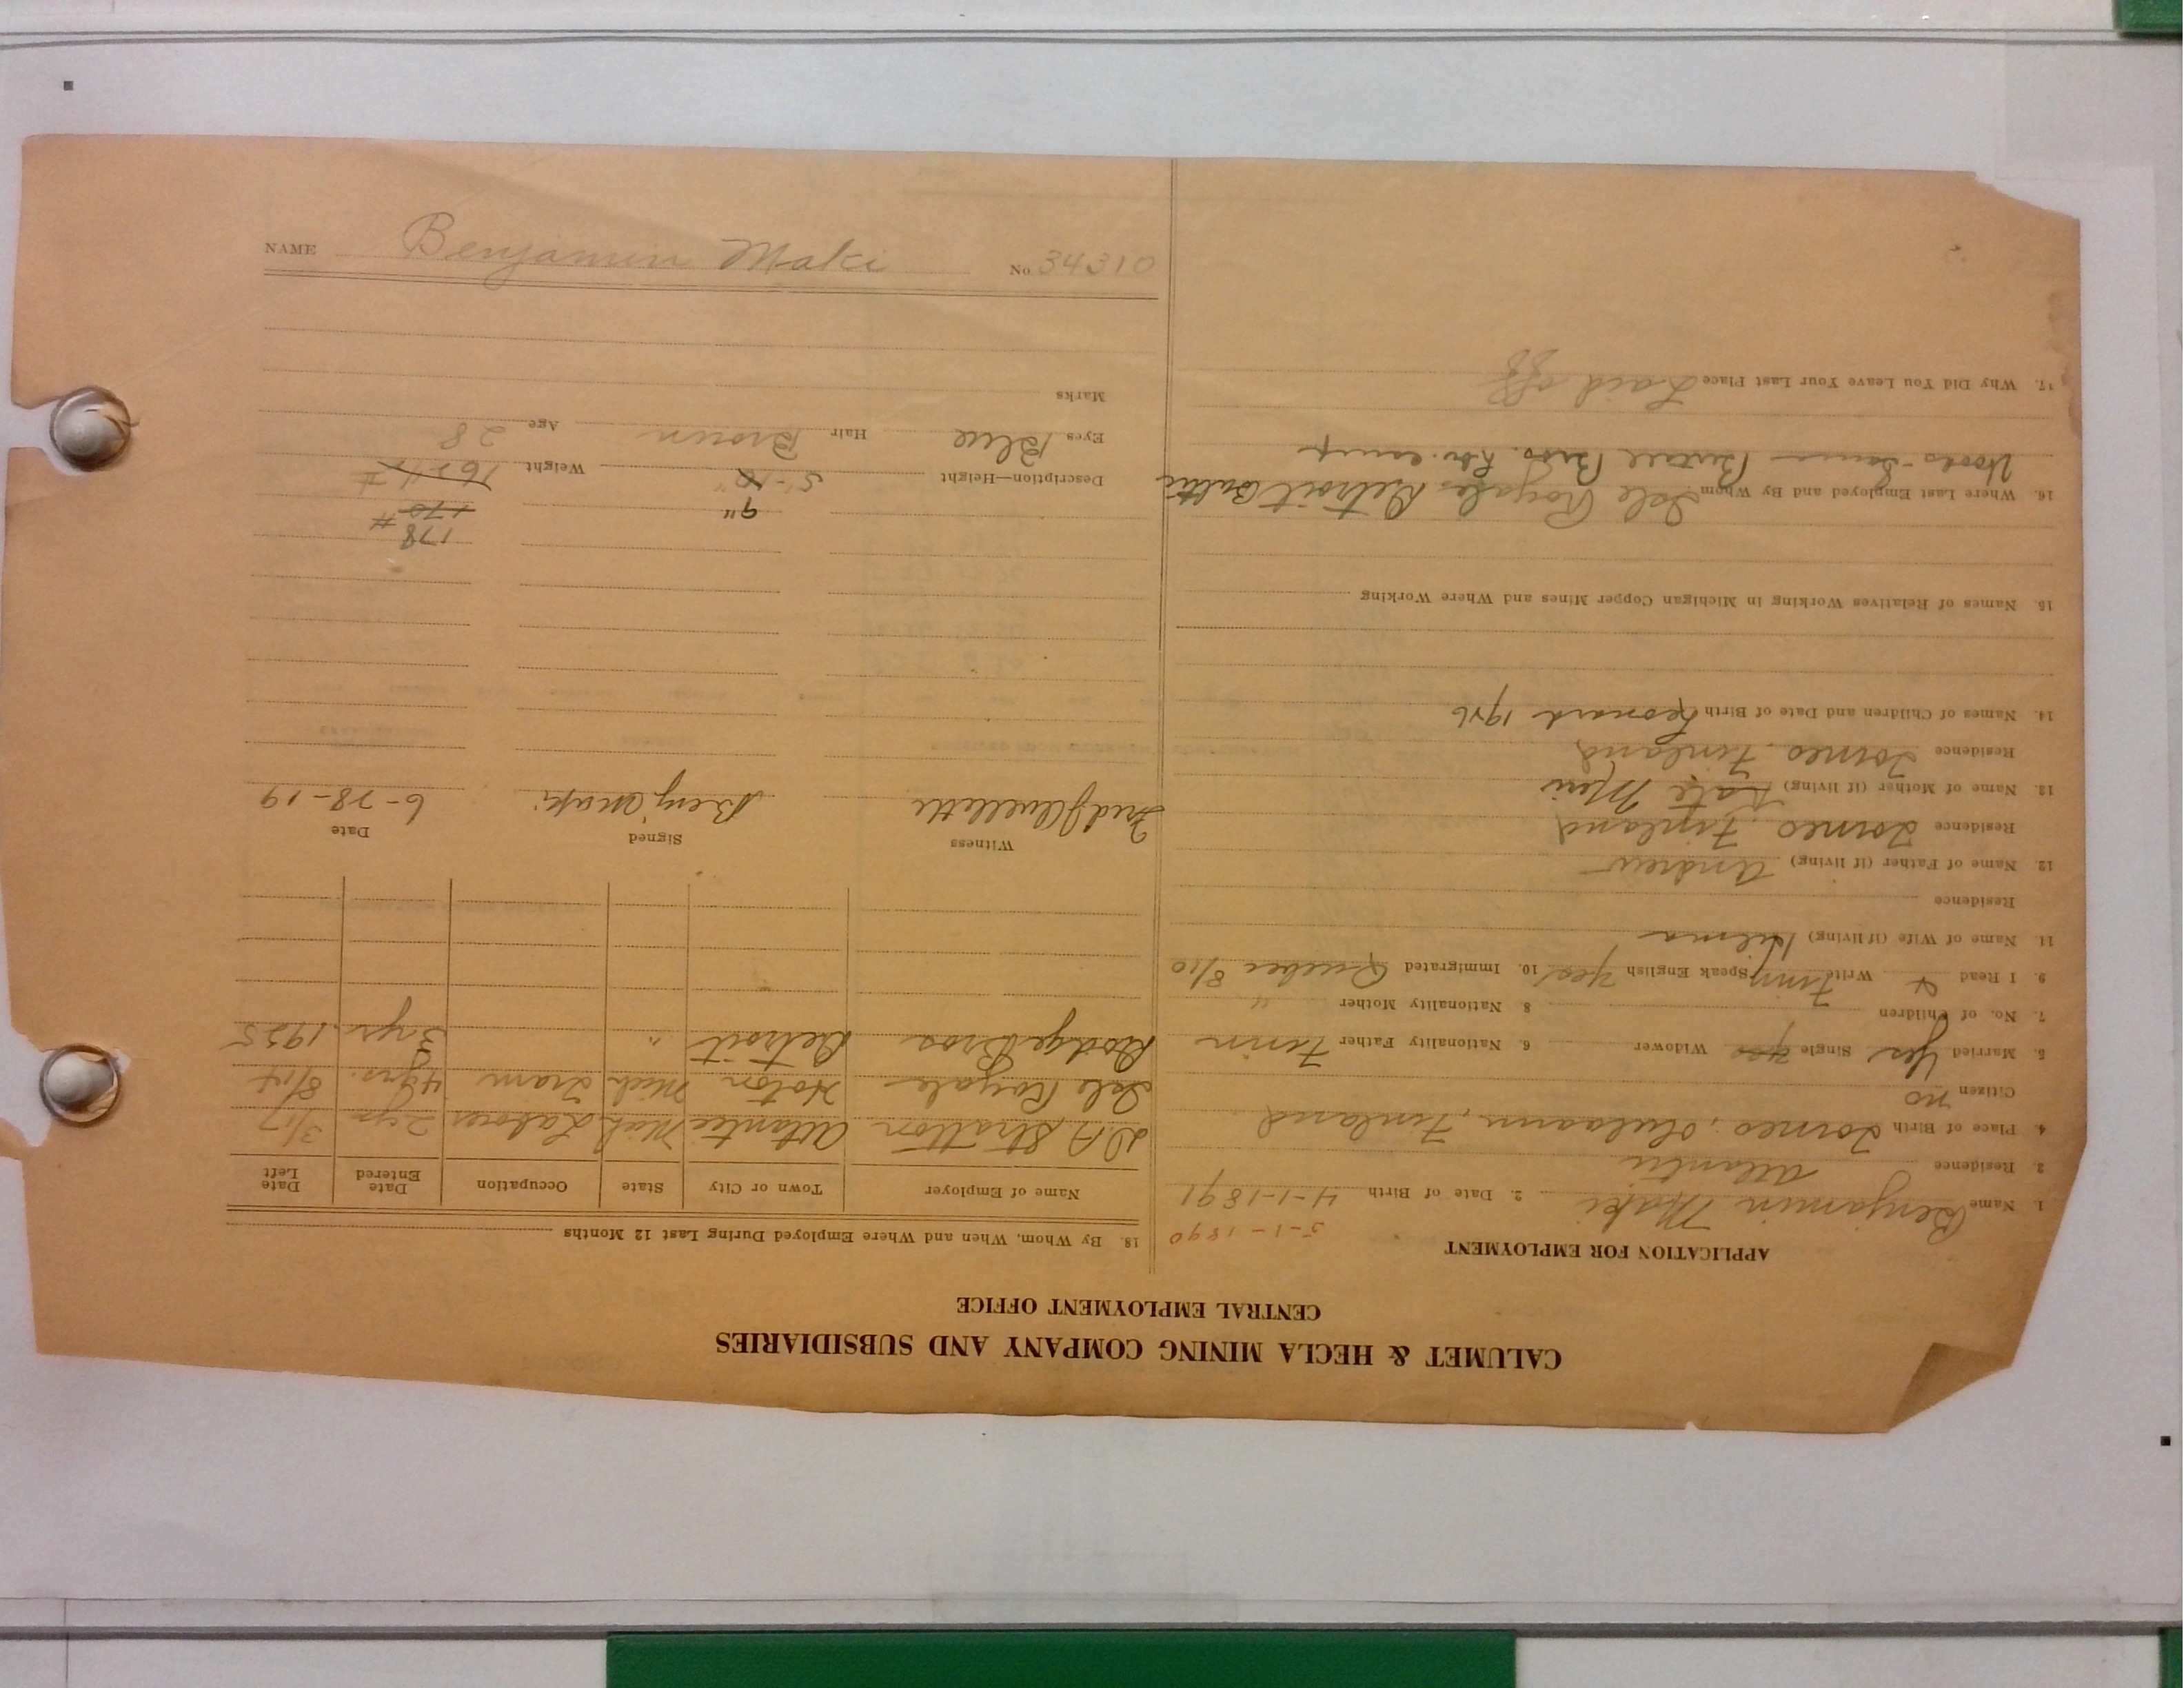 CALUMET & HECLA MINING COMPANY AND SUBSIDIARIES
CENTRAL EMPLOYMENT OFFICE
APPLICATION FOR EMPLOYMENT
5-1-1890
1. Name Benjamin Maki 2. Date of Birth 4-1-1891
3. Residence Atlantic
4. Place of Birth Torneo, Finland
Citizen no
5. Married Yes Single yes Widower 6. Nationality Father Finn
7. No. of Children 8 Nationality Mother "
9. I Read & Write Finn Speak English yes 10. Immigrated Quebec 8/10
11. Name of Wife (if living) Hilma
Residence
12. Name of Father (if living) Andrew
Residence Torneo, Finland
13. Name of Mother (if living) Kate
Residence Torneo, Finland
14. Names of Children and Date of Birth Leonard 1916
15. Names of Relatives Working in Michigan Copper Mines and Where Working
16. Where Last Employed and By Whom Isle Royale Detroit Baltic
Woods Bros. camp
17. Why Did You Leave Your Last Place Laid off
18. By Whom, When and Where Employed During Last 12 Months
Name of Employer Town or City State Occupation Date Entered Date Left
D.A Stratton Atlantic Mich Laborer 2 yr 3/17
Isle Royale Hoton Mich Tram 4 yrs. 8/14
Dodge Bros Detroit " 3 yr 1925
Witness Signed Date
Fred J Ouellette Benj Maki 6-28-19
178
9" 170 #
Description—Height 5'-10" Weight 165 #
Eyes Blue Hair Brown Age 28
Marks
NAME Benjamin Maki No. 34310